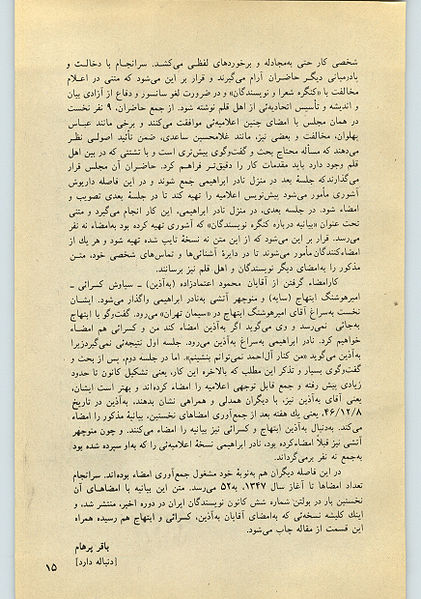 شخصی کار حتی به‌مجادله و برخوردهای لفظی می‌کشد. سرانجام با دخالت و
پادرمیانی دیگر حاضران آرام می‌گیرند و قرار بر این می‌شود که متنی در اعلام
مخالفت با «کنگره شعرا و نویسندگان» و در ضرورت لغو سانسور و دفاع از آزادی بیان
و اندیشه و تأسیس اتحادیه‌ئی از اهل قلم نوشته شود. از جمع حاضران، ۹ نفر نخست
در همان مجلس با امضای چنین اعلامیه‌ئی موافقت می‌کنند و برخی مانند عباس
پهلوان، مخالفت و بعضی نیز، مانند غلامحسین ساعدی، ضمن تأئید اصولی نظر
می‌دهند که مسأله محتاج بحث و گفت‌وگوی بیش‌تری است و با تشتتی که در بین اهل
قلم وجود دارد باید مقدمات کار را دقیق‌تر فراهم کرد. حاضران آن مجلس قرار
می‌گذارند‌که جلسهٔ بعد در منزل نادر ابراهیمی جمع شوند و در این فاصله داریوش
آشوری مأمور می‌شود پیش‌نویس اعلامیه را تهیه کند تا در جلسهٔ بعدی تصویب و
امضاء شود. در جلسه بعدی، در منزل نادر ابراهیمی، این کار انجام می‌گیرد و متنی
تحت عنوان «بیانیه درباره کنگره نویسندگان» که آشوری تهیه کرده بود به‌امضاء نه نفر
می‌رسد. قرار بر این می‌شود که از این متن نه نسخهٔ تایپ شده تهیه شود و هر یك از
امضاءکنندگان مأمور می‌شوند تا در دایرهٔ آشنائی‌ها و تماس‌های شخصی خود، متن
مذکور را به‌امضای دیگر نویسندگان و اهل قلم نیز برسانند.
کارامضاء گرفتن از آقایان محمود اعتمادزاده (به‌آذین) ـ سیاوش کسرائی ـ
امیرهوشنگ ابتهاج (سایه) و منوچهر آتشی به‌نادر ابراهیمی واگذار می‌شود. ایشان
نخست به‌سراغ آقای امیرهوشنگ ابتهاج در «سیمان تهران» می‌رود. گفت‌وگو با ابتهاج
به‌جائی نمی‌رسد و وی می‌گوید اگر به‌آذین امضاء کند من و کسرائی هم امضاء
خواهیم کرد. نادر ابراهیمی به‌سراغ به‌آذین می‌رود. جلسه اول نتیجه‌ئی نمی‌گیردزیرا
به‌آذین می‌گوید «من کنار آل‌احمد نمی‌توانم بنشینم». اما در جلسه دوم، پس از بحث و
گفت‌وگوی بسیار و تذکر این مطلب که بالاخره این کار، یعنی تشکیل کانون تا حدود
زیادی پیش رفته و جمع قابل توجهی اعلامیه را امضاء کرده‌اند و بهتر است ایشان،
یعنی آقای به‌آذین نیز، با دیگران همدلی و همراهی نشان بدهند، به‌آذین در تاریخ
۴۶/۱۲/۸، یعنی یك هفته بعد از جمع‌آوری امضاهای نخستین، بیانیهٔ مذکور را امضاء
می‌کند. به‌دنبال به‌آذین ابتهاج و کسرائی نیز بیانیه را امضاء می‌کنند. و چون منوچهر
آتشی نیز قبلاً امضاءکرده بود، نادر ابراهیمی نسخهٔ اعلامیه‌ئی را که به‌او سپرده شده بود
به‌جمع نه نفر برمی‌گرداند.
در این فاصله دیگران هم به‌نوبهٔ خود مشغول جمع‌آوری امضاء بوده‌اند. سرانجام
تعداد امضاها تا آغاز سال ۱۳۴۷، به‌۵۲ می‌رسد. متن این بیانیه با امضاهای آن
نخستین بار در بولتن شماره شش کانون نویسندگان ایران در دوره اخیر، منتشر شد، و
اینك کلیشه نسخه‌ئی که به‌امضای آقایان به‌آذین، کسرائی و ابتهاج هم رسیده همراه
این قسمت از مقاله چاپ می‌شود.
باقر پرهام
[دنباله دارد]
۱۵